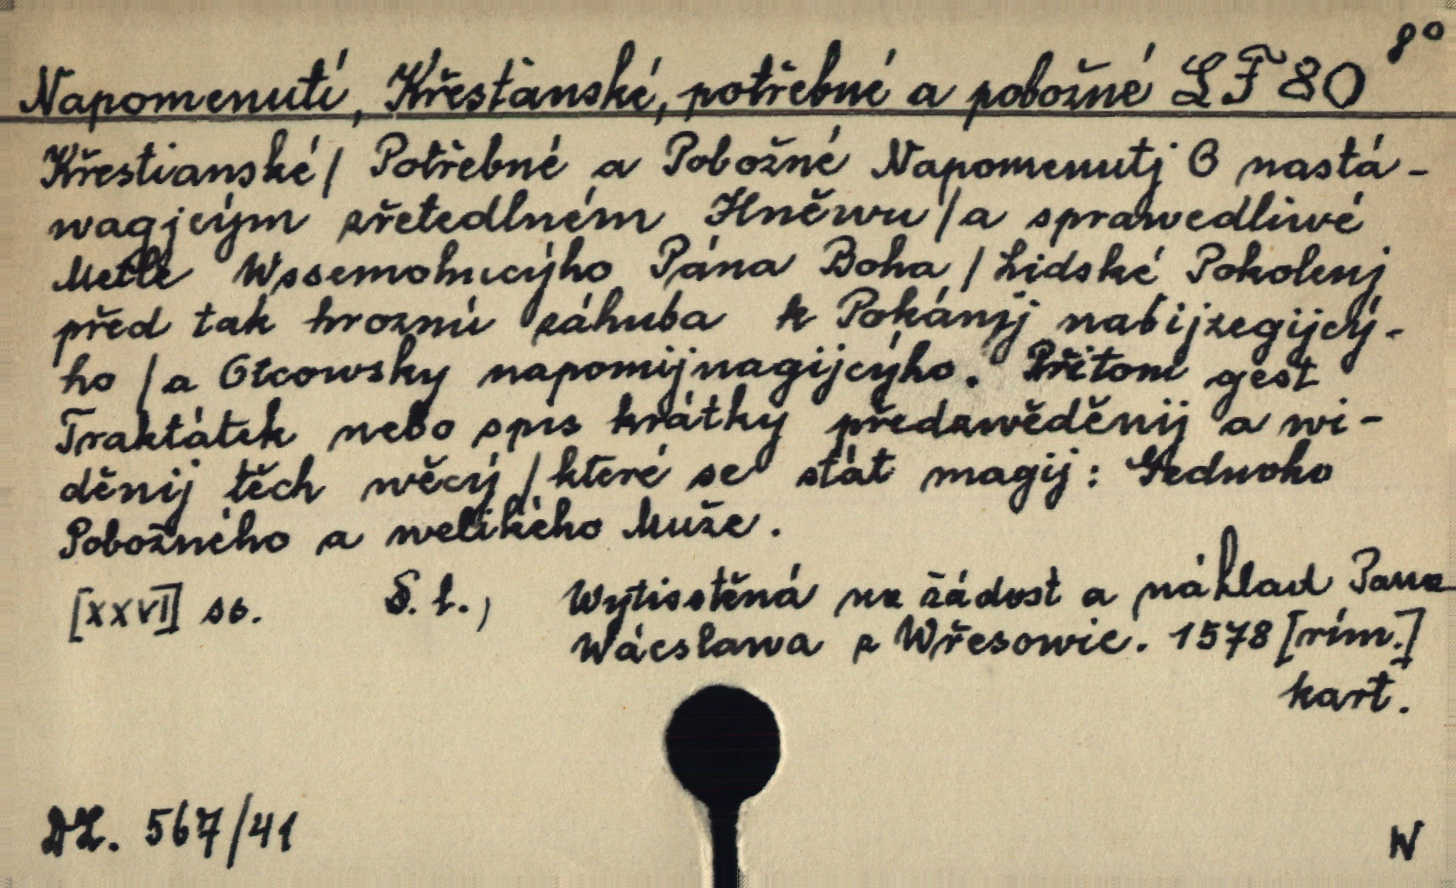 8°
Napomenutí, Křesťanské, potřebné a pobožné LF 80
Křestianské/ Potřebné a Pobožné Napomenutj O nastá-
wagjcým zřetedlném Hněwu/a sprawedliwé
Metle Wssemohucýho Pána Boha/Lidské Pokolenj
před tak hroznú záhuba k Pokánij nabijzegijcý-
ho/a Otcowsky napomijnagijcýho. Přitom gest
Traktátek nebo spis krátky předzwěděnij a wi-
děnij těch wěcý/které se stát magij: Gednoho
Pobožného a welikého Muže.
[XXVI] ss. S. l., Wytisstěná na žádost a náklad Pana
Wácslawa z Wřesowic. 1578 [rím.]
kart.
DZ. 567/41
W